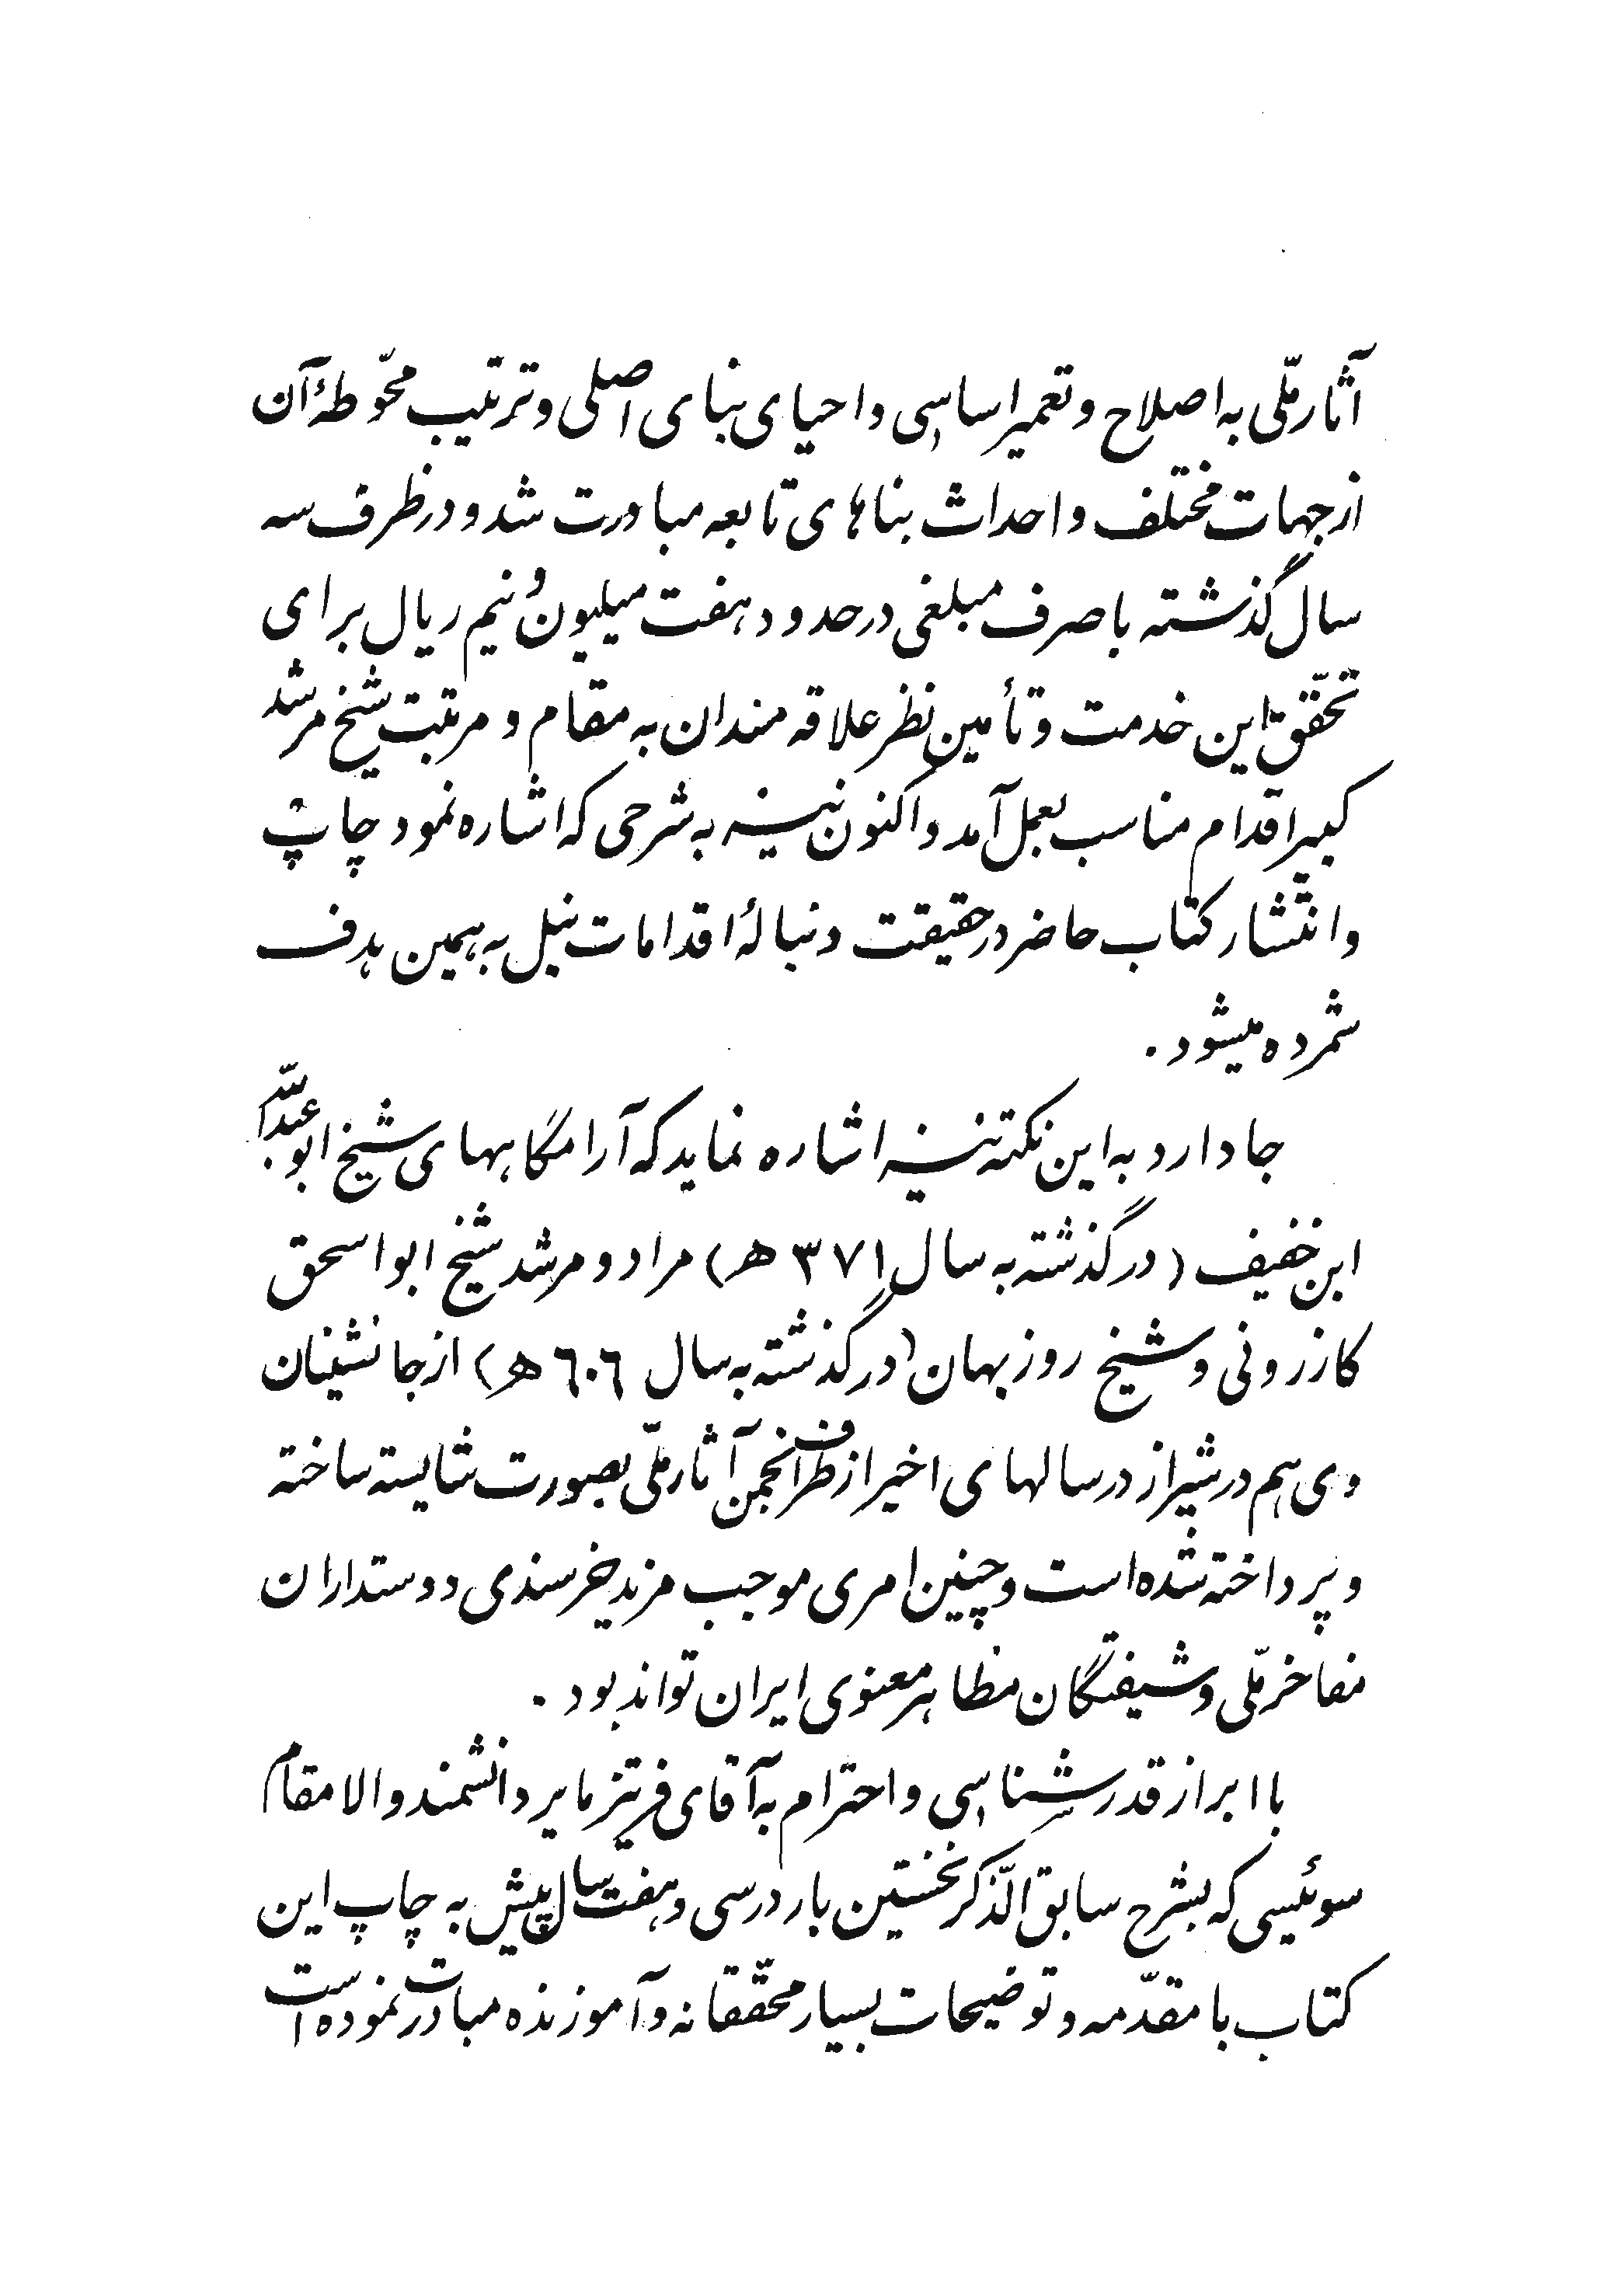 آثار ملّی به اصلاح و تعمیر اساسی و احیای بنای اصلی و ترتیب محوّطهٔ آن
از جهات مختلف و احداث بناهای تابعه مبادرت شد و در ظرف سه
سال گذشته با صرف مبلغی در حدود هفت میلیون و نیم ریال برای
تحقّق این خدمت و تأمین نظر علاقه مندان به مقام و مرتبت شیخ مرشد
کبیر اقدام مناسب بعمل آمد و اکنون نیز به شرحی که اشاره نمود چاپ
و انتشار کتاب حاضر در حقیقت دنبالهٔ اقدامات نیل به همین هدف
شمرده میشود .
جا دارد به این نکته نیز اشاره نماید که آرامگاههای شیخ ابو عبدالله
ابن خفیف ( در گذشته به سال ۳۷۱ هـ ) مراد و مرشد شیخ ابو اسحق
کازرونی و شیخ روزبهان ( در گذشته به سال ٦٠٦ هـ ) از جانشینان
وی هم در شیراز در سالهای اخیر از طرف انجمن آثار ملّی بصورت شایسته ساخته
و پرداخته شده است و چنین امری موجب مزید خرسندی دوستداران
مفاخر ملّی و شیفتگان مظاهر معنوی ایران تواند بود .
با ابراز قدرشناسی و احترام به آقای فریتز مایر دانشمند والامقام
سوئیسی که بشرح سابق الذّکر نخستین بار در سی و هفت سال پیش به چاپ این
کتاب با مقدّمه و توضیحات بسیار محقّقانه و آموزنده مبادرت نموده است